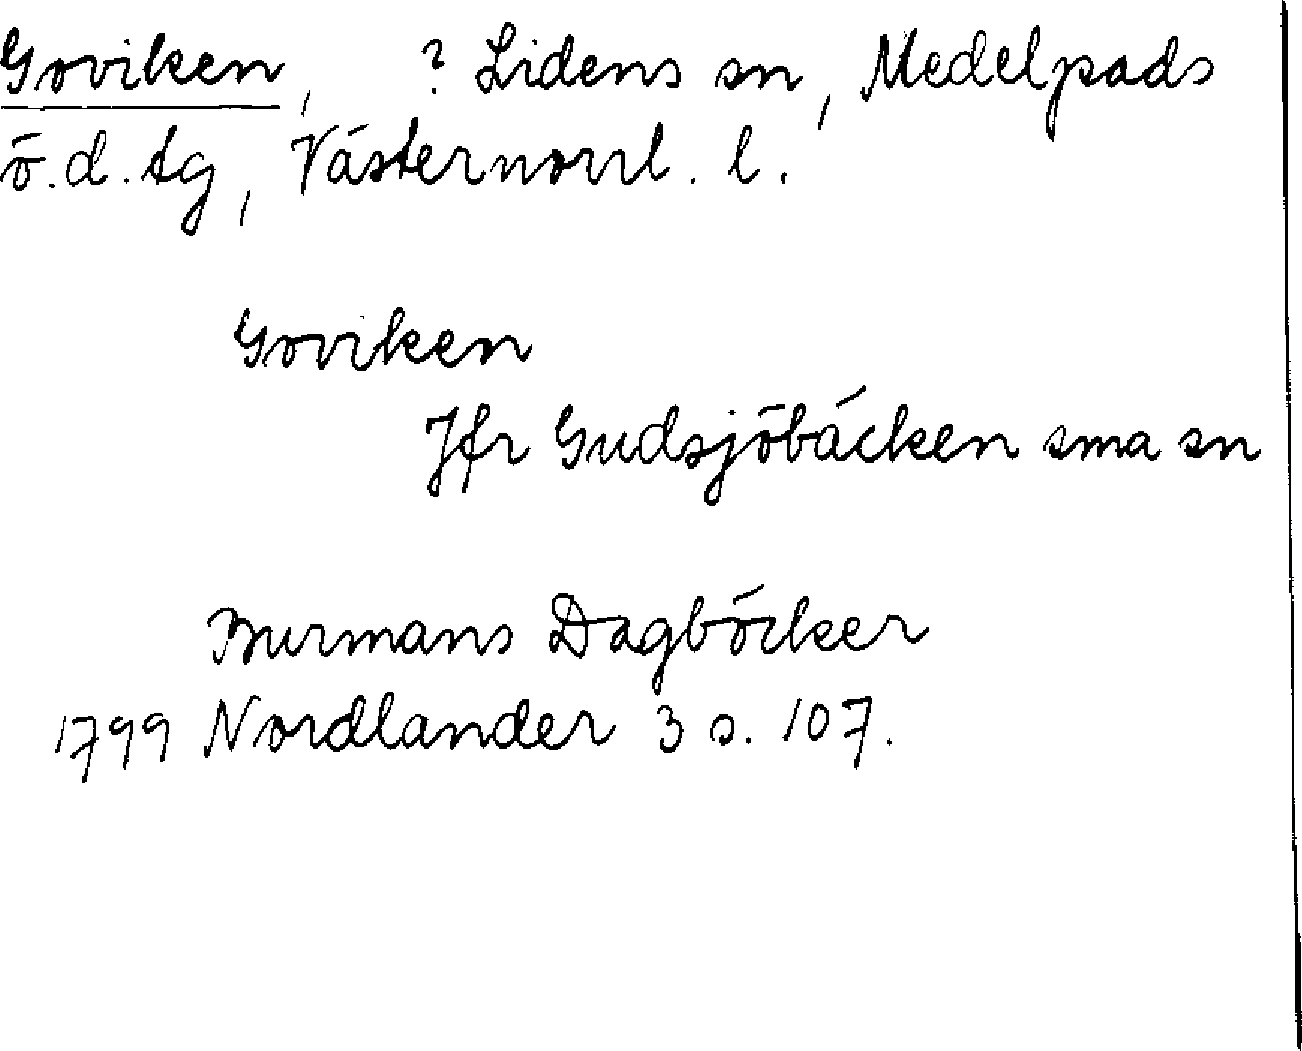 Goviken, ? Lidens sn, Medelpads
ö.d.tg, Västernorrl. l.
Goviken
Jfr Gudsjöbäcken sma sn
Burmans Dagböcker
1799 Nordlander 3 s. 107.